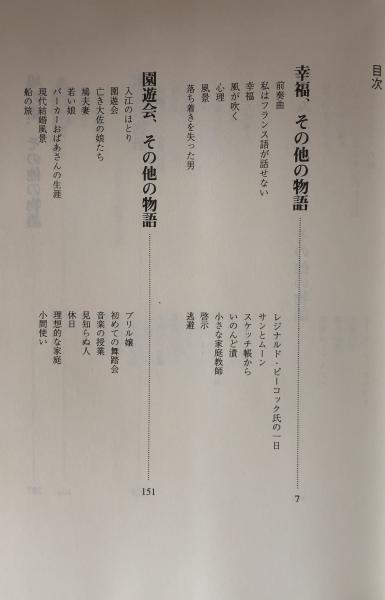 目次
幸福、その他の物語 7
前奏曲
私はフランス語が話せない
幸福
風が吹く
心理
風景
落ち着きを失った男
レジナルド・ピーコック氏の一日
サンとムーン
スケッチ帳から
いのんど漬
小さな家庭教師
啓示
逃避
園遊会、その他の物語 151
入江のほとり
園遊会
亡き大佐の娘たち
鳩夫妻
若い娘
パーカーおばあさんの生涯
現代結婚風景
船の旅
ブリル嬢
初めての舞踏会
音楽の授業
見知らぬ人
休日
理想的な家庭
小間使い